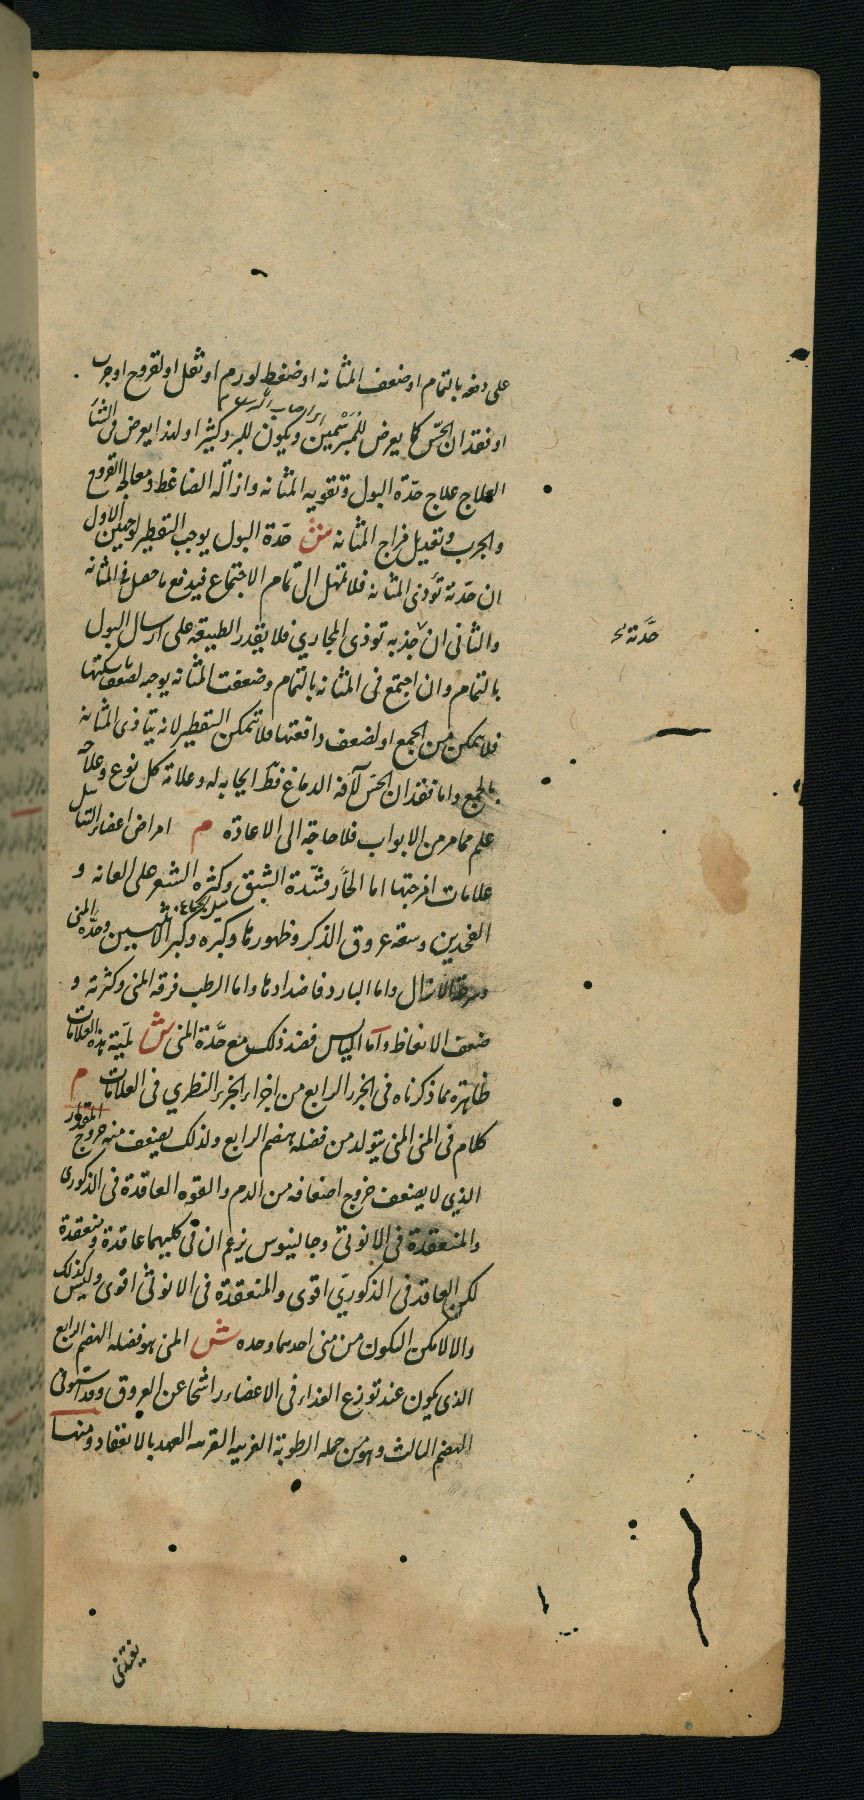 على دفعه بالتمام او ضعف المثانه او ضغط لورم او ثفل او لقروح او جرب
او نفقدان الحسّ كما يعرض للمبرسمين ويكون للبرد كثيرا ولهذا يعرض فى الشتا
العلاج علاج حدّة البول وتقويه المثانه وازالة الضاغط ومعالجه القروح
والجرب وتعديل مزاج المثانه ش حدّة البول يوجب التقطير لوجهين الاول
ان حدّته تؤذى المثانه فلا تمهل الى تمام الاجتماع فيدفع ما حصل فى المثانه
والثانى ان جذبه توذى المجارى فلا يقدر الطبيعه على ارسال البول
حدّته
بالتمام وان اجتمع فى المثانه بالتمام وضعفت المثانه يوجبه لضعف ماسكتها
فلا يتمكن من الجمع او لضعف دافعتها فلا تتمكن التقطير لانه يتأذى المثانه
بالجمع واما فقدان الحسّ لآفه الدماغ فظ ايجابه له وعلامة كل نوع وعلاجه
علم مما مر من الابواب فلا حاجة الى الاعادة م امراض اعضاء التناسل
علامات امزجتها اما الحار فشدّة الشبق وكثره الشعر على العانه و
الفخذين وسعة عروق الذكر وظهورها وكبره وكبر الانثيين وحدّه المنى
وسرعة الانزال واما البارد فاضدادها واما الرطب فرقه المنى وكثرته و
ضعف الانعاظ واما اليابس فضد ذلك مع حدّة المنى ش لمّية هذه العلامات
ظاهره مما ذكرناه فى الجزء الرابع من اجزاء الجزء النظرى فى العلامات م
كلام فى المنى المنى يتولد من فضله هضم الرابع ولذلك يضعف منه خروج المقدار
الذى لا يضعف خروج اضعافه من الدم والقوه العاقدة فى الذكورى
والمنعقدة فى الانوثى وجالينوس يزعم ان فى كليهما عاقدة ومنعقدة
لكن العاقد فى الذكورىّ اقوى والمنعقدة فى الانوثى اقوى وليس كذلك
والا لامكن التكون من منى احدهما وحده ش المنى هو فضله الهضم الرابع
الذى يكون عند توزع الغذاء فى الاعضاء راشحا عن العروق وقد استوفى
الهضم الثالث وهو من جمله الرطوبة الغريبه القريبه العهد بالانعقاد ومنها
يغتذى